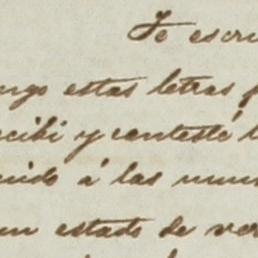 Te escri
ngo estas letras
cibi y contesté
nido á las
un estado de ver